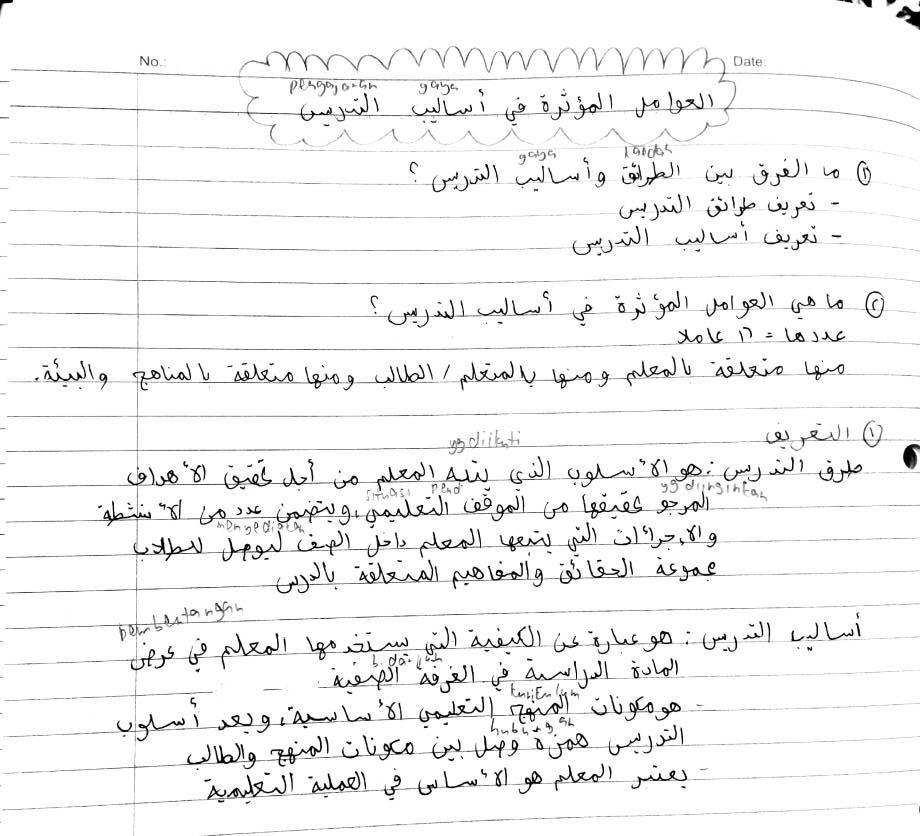 No.:
Date:
pengajaran gaya
العوامل المؤثرة في أساليب التدريس
gaya kaedah
① ما الفرق بين الطرائق وأساليب التدريس؟
- تعريف طرائق التدريس
- تعريف أساليب التدريس
② ما هي العوامل المؤثرة في أساليب التدريس؟
عددها = ١٦ عاملا
منها متعلقة بالمعلم ومنها بالمتعلم / الطالب ومنها متعلقة بالمناهج والبيئة.
① التعريف
yg diikuti
طرق التدريس: هو الأسلوب الذي يتبعه المعلم من أجل تحقيق الأهداف
situasi pend yg diinginkan
المرجو تحقيقها من الموقف التعليمي، ويتضمن عدد من الأنشطة
menyediakan
والإجرائات التي يتبعها المعلم داخل الصف ليوصل للطلاب
مجموعة الحقائق والمفاهيم المتعلقة بالدرس
pembentangan
أساليب التدريس: هو عبارة عن الكيفية التي يستخدمها المعلم في عرض
المادة الدراسية في الغرفة الصفية.
kurikulum
- هو مكونات المنهج التعليمي الأساسية، ويعد أسلوب
hubungan
التدريس همزة وصل بين مكونات المنهج والطالب
- يعتبر المعلم هو الأساس في العملية التعليمية